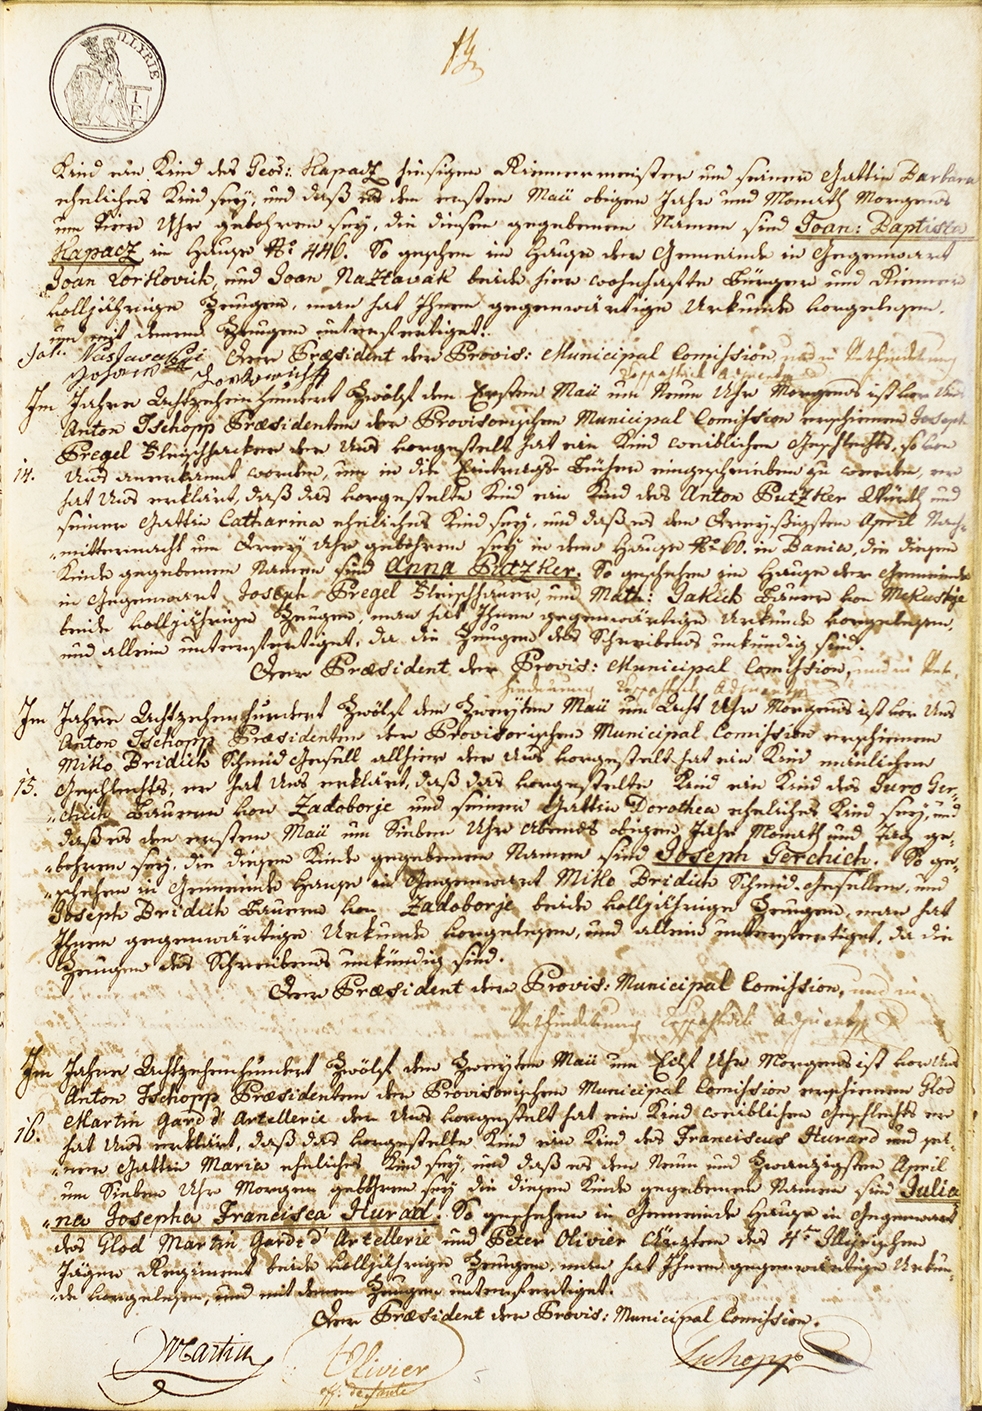 ILLYRIE
1 F
Kind ein Kind des Geor: Kapacz hiesigen Riemermeister und seiner Gattin Barbara
eheliches Kind sey, und daß es den ersten Maii obigen Jahr und Monath Morgens
um Uhr gebohren sey, die diesen gegebenen Namen sind Joan: Baptista
Kapacz in Hause No 446. So geschehen im Hause der Gemeinde in Gegenwart
Joan und Joan beide hier wohnhafte Bürger und Riemer
volljährige Zeugen, man hat Ihnen gegenwärtige Urkunde vorgelesen,
und mit denen Zeugen unterfertiget.
Der Præsident der Provis: Municipal Comission, und in Verhinderung
Im Jahre Achtzehenhundert Zwölf den Ersten Maii um Neun Uhr Morgens ist vor Uns
Anton Tschopp Præsidenten der Provisorischen Municipal Comission erschienen Joseph
Pregel Fleischhacker der Uns vorgestelt hat ein Kind weiblichen Geschlechts, so von
14. Uns anerkannt worden, um in die Eintrags-Bücher eingeschrieben zu werden, er
hat Uns erklärt, daß das vorgestelte Kind ein Kind des Anton Putzker Würth und
seiner Gattin Catharina eheliches Kind sey, und daß es den Dreyßigsten April Nach-
mitternacht um Drey Uhr gebohren sey in dem Hause No 60. in Bania, die diesen
Kinde gegebenen Namen sind Anna Putzker. So geschehen im Hause der Gemeinde
in Gegenwart Joseph Pregel Fleischhauer, und Math: Jakich Bauer von Mekushje
beide volljährige Zeugen, man hat Ihnen gegenwärtige Urkunde vorgelesen,
und allein unterfertiget, da die Zeugen des Schreibens unkündig sind.
Der Præsident der Provis: Municipal Comission, und in Ver-
hinderung
Im Jahre Achtzehenhundert Zwölf den Zweyten Maii um Acht Uhr Morgens ist vor Uns
Anton Tschopp Præsidenten der Provisorischen Municipal Comission erschienen
Mitko Bridich Schmid Gesell allhier der Uns vorgestelt hat ein Kind mänlichen
15. Geschlechts, er hat Uns erklärt, daß das vorgestelte Kind ein Kind des Juro Ger-
chich Bauern von Zadoborje und seiner Gattin Dorothea eheliches Kind sey, und
daß es den ersten Maii um Sieben Uhr Abends obigen Jahr Monath und Tag ge-
bohren sey, die diesen Kinde gegebenen Namen sind Joseph Gerchich. So ge-
schehen in Gemeinde Hause in Gegenwart Mitko Bridich Schmid-Gesellen, und
Joseph Bridich Bauern von Zadoborje beide volljährige Zeugen, man hat
Ihnen gegenwärtige Urkunde vorgelesen, und allein unterfertiget, da die
Zeugen des Schreibens unkündig sind.
Der Præsident der Provis: Municipal Comission, und in
Verhinderung
Im Jahre Achtzehenhundert Zwölf den Zweyten Maii um Eilf Uhr Morgens ist vor Uns
Anton Tschopp Præsidenten der Provisorischen Municipal Comission erschienen Glod
Martin Gard d'Artellerie der Uns vorgestelt hat ein Kind weiblichen Geschlechts er
16. hat Uns erklärt, daß das vorgestelte Kind ein Kind des Franciscus Hurard und sei-
ner Gattin Maria eheliches Kind sey, und daß es den Neun und Zwanzigsten April
um Sieben Uhr Morgen gebohren sey die diesen Kinde gegebenen Namen sind Julia-
na Josepha Francisca Hurad. So geschehen in Gemeinde Hause in Gegenwart
des Glod Martin Gard d'Artellerie und Peter Olivier Ärzten des 4ten Illirischen
Jäger Regiment beide volljährige Zeugen, man hat Ihnen gegenwärtige Urkun-
de vorgelesen, und mit denen Zeugen unterfertiget.
Der Præsident der Provis: Municipal Comission.
Martin Olivier Tschopp
off: de santé